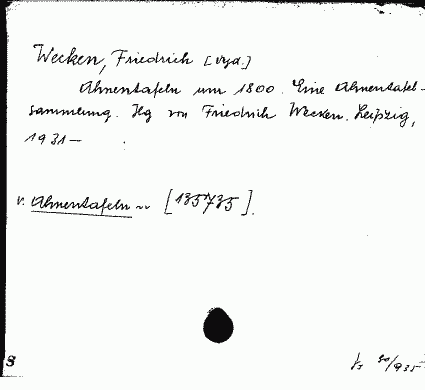 Wecken, Friedrich [vyd.]
Ahnentafeln um 1800. Eine Ahnentafel-
sammlung. Hg von Friedrich Wecken. Leipzig,
1931—
v. Ahnentafeln ~ [135735].
S